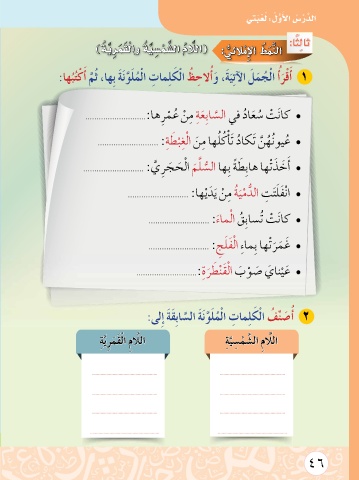 الدَّرْسُ الأَوَّلُ: لُعبَتي
ثالِثًا: النَّمَطُ الإِمْلائِيُّ: (اللّامُ الشَّمْسِيَّةُ والْقَمَرِيَّةُ)
١ أَقْرَأُ الْجُمَلَ الآتِيَةَ، وَأُلاحِظُ الْكَلِماتِ الْمُلَوَّنَةَ بِها، ثُمَّ أَكْتُبُها:
• كانَتْ سُعادُ في السّابِعَةِ مِنْ عُمْرِها: ..............................
• عُيونُهُنَّ تَكادُ تَأْكُلُها مِنَ الْغِبْطَةِ: ..............................
• أَخَذَتْها هابِطَةً بِها السُّلَّمَ الْحَجَرِيَّ: ..............................
• انْفَلَتَتِ الدُّمْيَةُ مِنْ يَدَيْها: ..............................
• كانَتْ تُسابِقُ الْماءَ: ..............................
• غَمَرَتْها بِماءِ الْفَلَجِ: ..............................
• عَيْنايَ صَوْبَ الْقَنْطَرَةِ: ..............................
٢ أُصَنِّفُ الْكَلِماتِ الْمُلَوَّنَةَ السّابِقَةَ إِلى:
اللّامِ الشَّمْسِيَّةِ
اللّامِ الْقَمَرِيَّةِ
٤٦